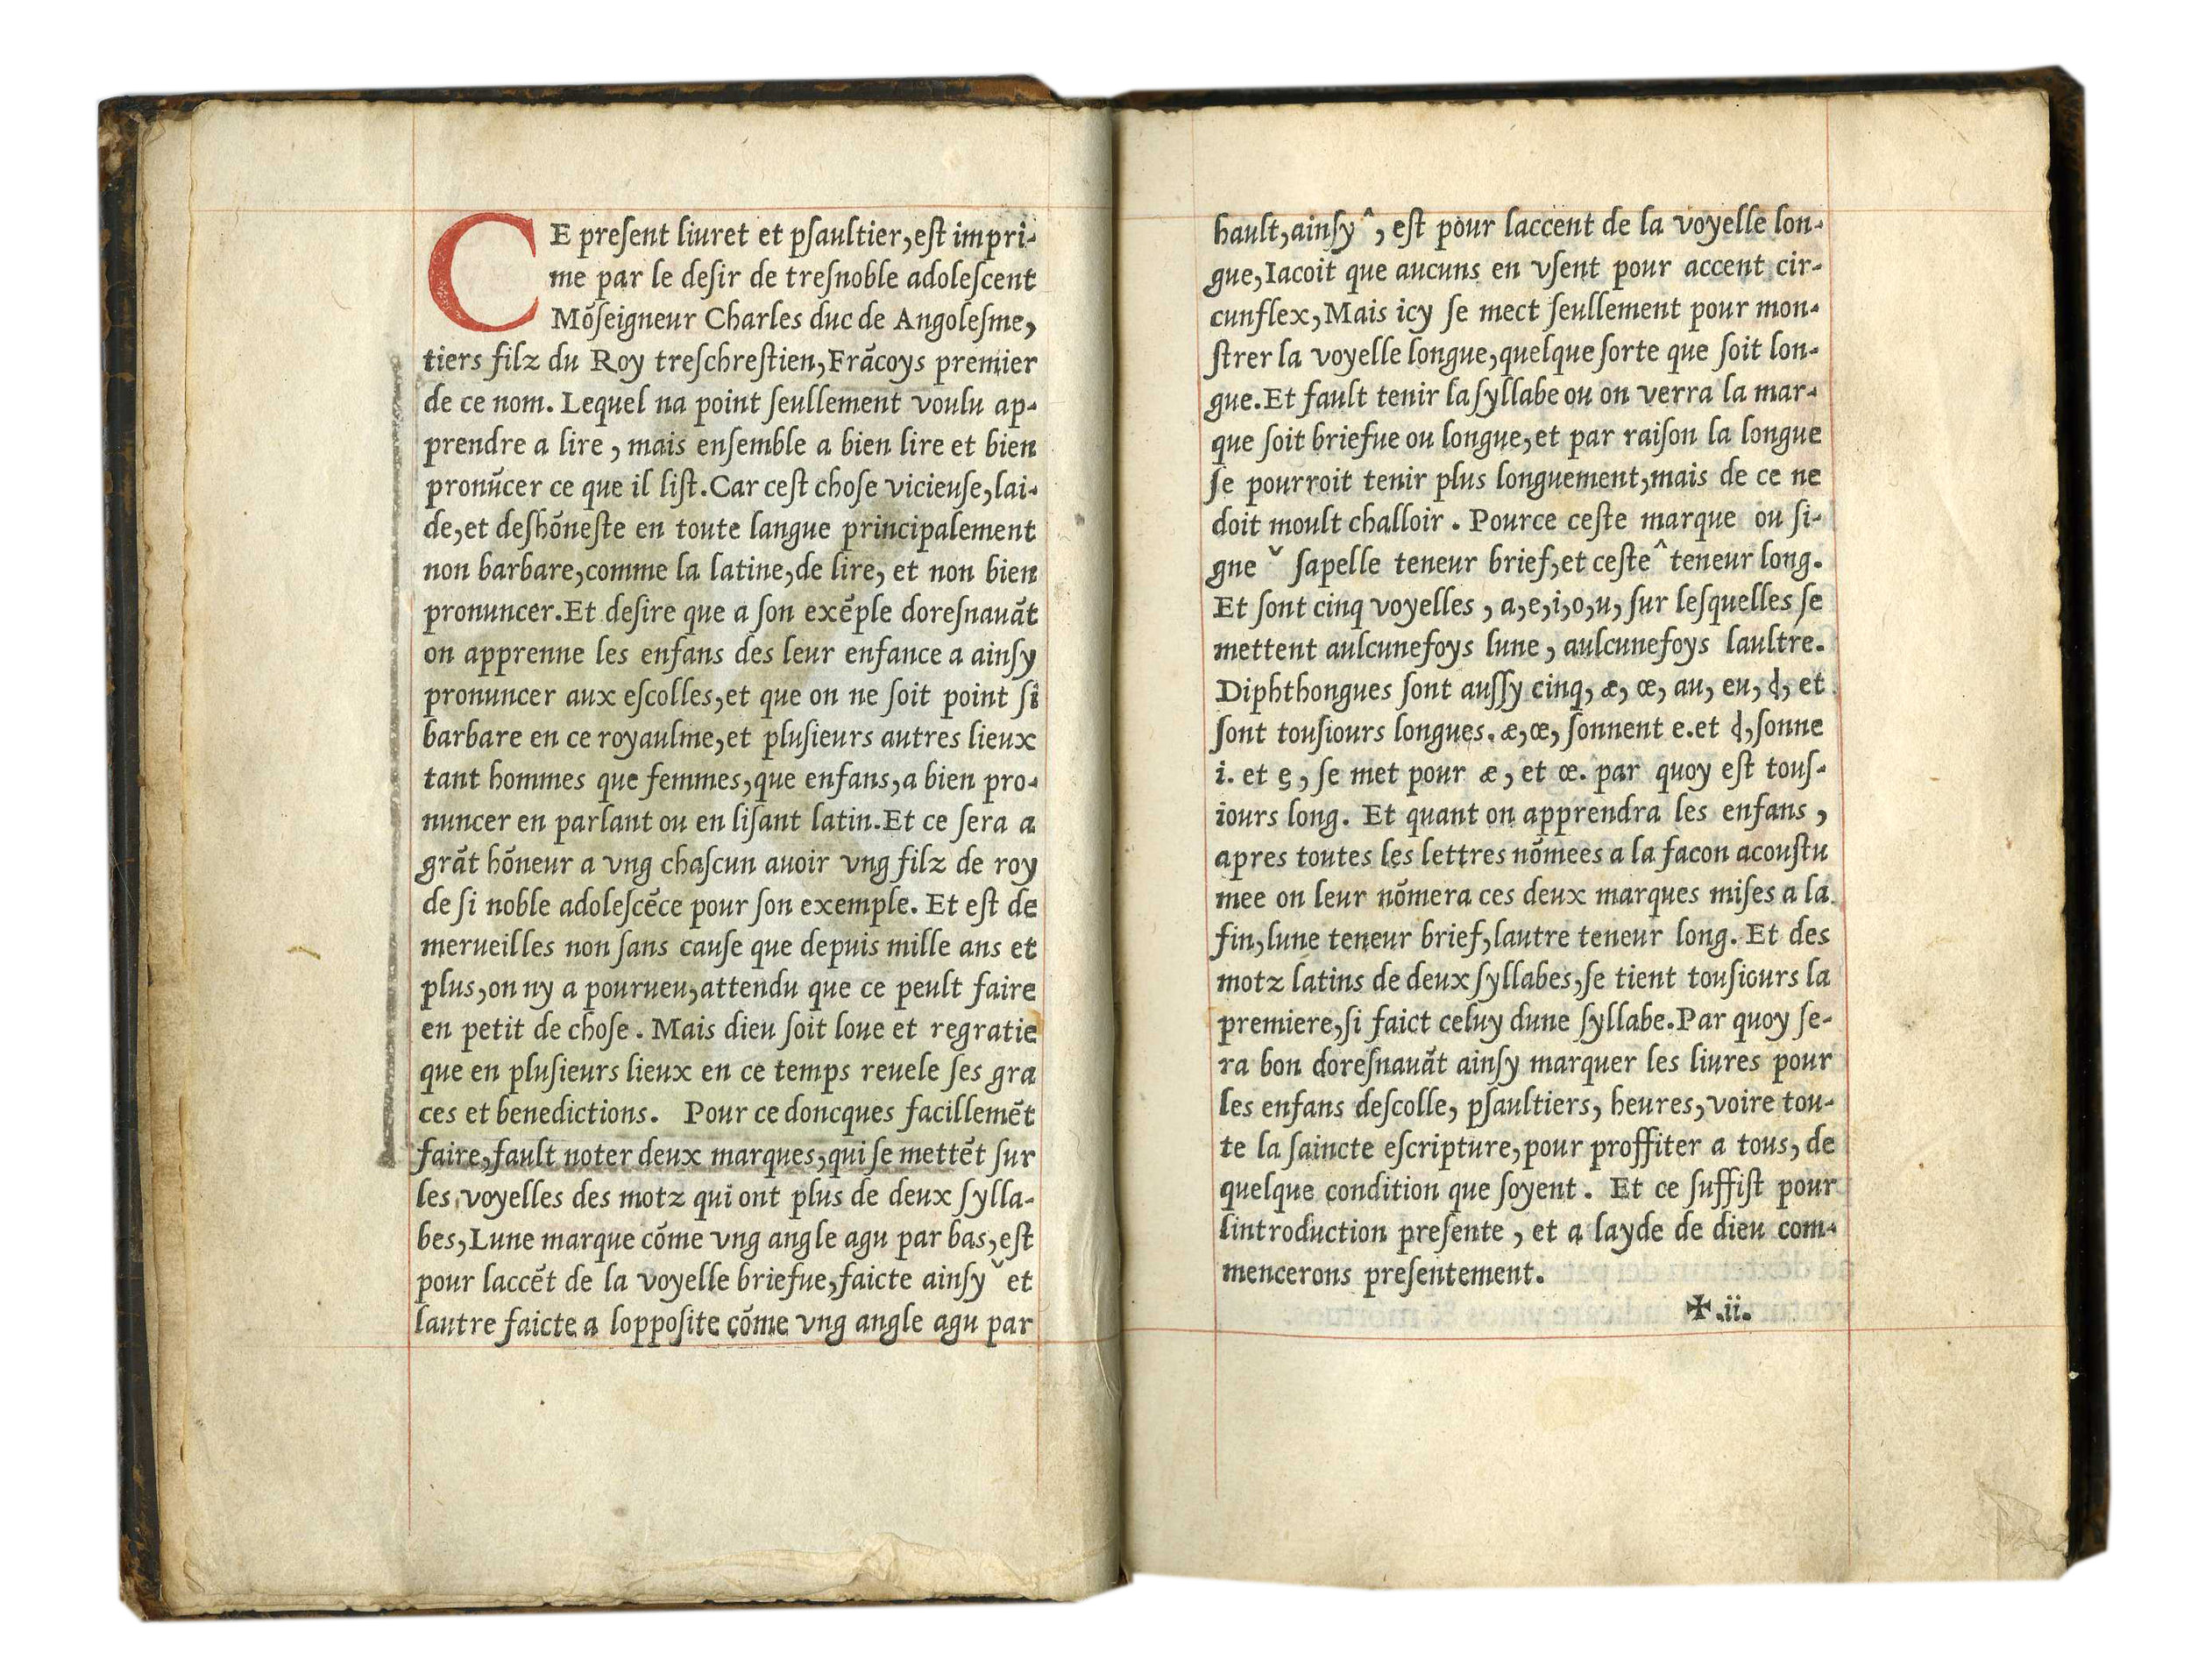 CE preſent liuret et pſaultier, eſt impri-
me par le deſir de treſnoble adoleſcent
Mõſeigneur Charles duc de Angoleſme,
tiers filz du Roy treſchreſtien, Frãcoys premier
de ce nom. Lequel na point ſeullement voulu ap-
prendre a lire, mais enſemble a bien lire et bien
pronũcer ce que il liſt. Car ceſt choſe vicieuſe, lai-
de, et deſhõneſte en toute langue principalement
non barbare, comme la latine, de lire, et non bien
pronuncer. Et deſire que a ſon exẽple doreſnauãt
on apprenne les enfans des leur enfance a ainſy
pronuncer aux eſcolles, et que on ne ſoit point ſi
barbare en ce royaulme, et pluſieurs autres lieux
tant hommes que femmes, que enfans, a bien pro-
nuncer en parlant ou en liſant latin. Et ce ſera a
grãt hõneur a vng chaſcun auoir vng filz de roy
de ſi noble adoleſcẽce pour ſon exemple. Et eſt de
merueilles non ſans cauſe que depuis mille ans et
plus, on ny a pourueu, attendu que ce peult faire
en petit de choſe. Mais dieu ſoit loue et regratie
que en pluſieurs lieux en ce temps reuele ſes gra
ces et benedictions. Pour ce doncques facillemẽt
faire, fault noter deux marques, qui ſe mettẽt ſur
les voyelles des motz qui ont plus de deux ſylla-
bes, Lune marque cõme vng angle agu par bas, eſt
pour laccẽt de la voyelle briefue, faicte ainſy ˇ et
lautre faicte a loppoſite cõme vng angle agu par
hault, ainſy ^, eſt pour laccent de la voyelle lon-
gue, Iacoit que aucuns en vſent pour accent cir-
cunflex, Mais icy ſe mect ſeullement pour mon-
ſtrer la voyelle longue, quelque ſorte que ſoit lon-
gue. Et fault tenir la ſyllabe ou on verra la mar-
que ſoit briefue ou longue, et par raiſon la longue
ſe pourroit tenir plus longuement, mais de ce ne
doit moult challoir. Pource ceſte marque ou ſi-
gne ˇ ſapelle teneur brief, et ceſte ^ teneur long.
Et ſont cinq voyelles, a, e, i, o, u, ſur leſquelles ſe
mettent aulcunefoys lune, aulcunefoys laultre.
Diphthongues ſont auſſy cinq, æ, œ, au, eu, ꝗ, et
ſont touſiours longues. æ, œ, ſonnent e. et ꝗ, ſonne
i. et ę, ſe met pour æ, et œ. par quoy eſt touſ-
iours long. Et quant on apprendra les enfans,
apres toutes les lettres nõmees a la facon acouſtu
mee on leur nõmera ces deux marques miſes a la
fin, lune teneur brief, lautre teneur long. Et des
motz latins de deux ſyllabes, ſe tient touſiours la
premiere, ſi faict celuy dune ſyllabe. Par quoy ſe-
ra bon doreſnauãt ainſy marquer les liures pour
les enfans deſcolle, pſaultiers, heures, voire tou-
te la ſaincte eſcripture, pour proffiter a tous, de
quelque condition que ſoyent. Et ce ſuffiſt pour
lintroduction preſente, et a layde de dieu com-
mencerons preſentement.
✠.ii.